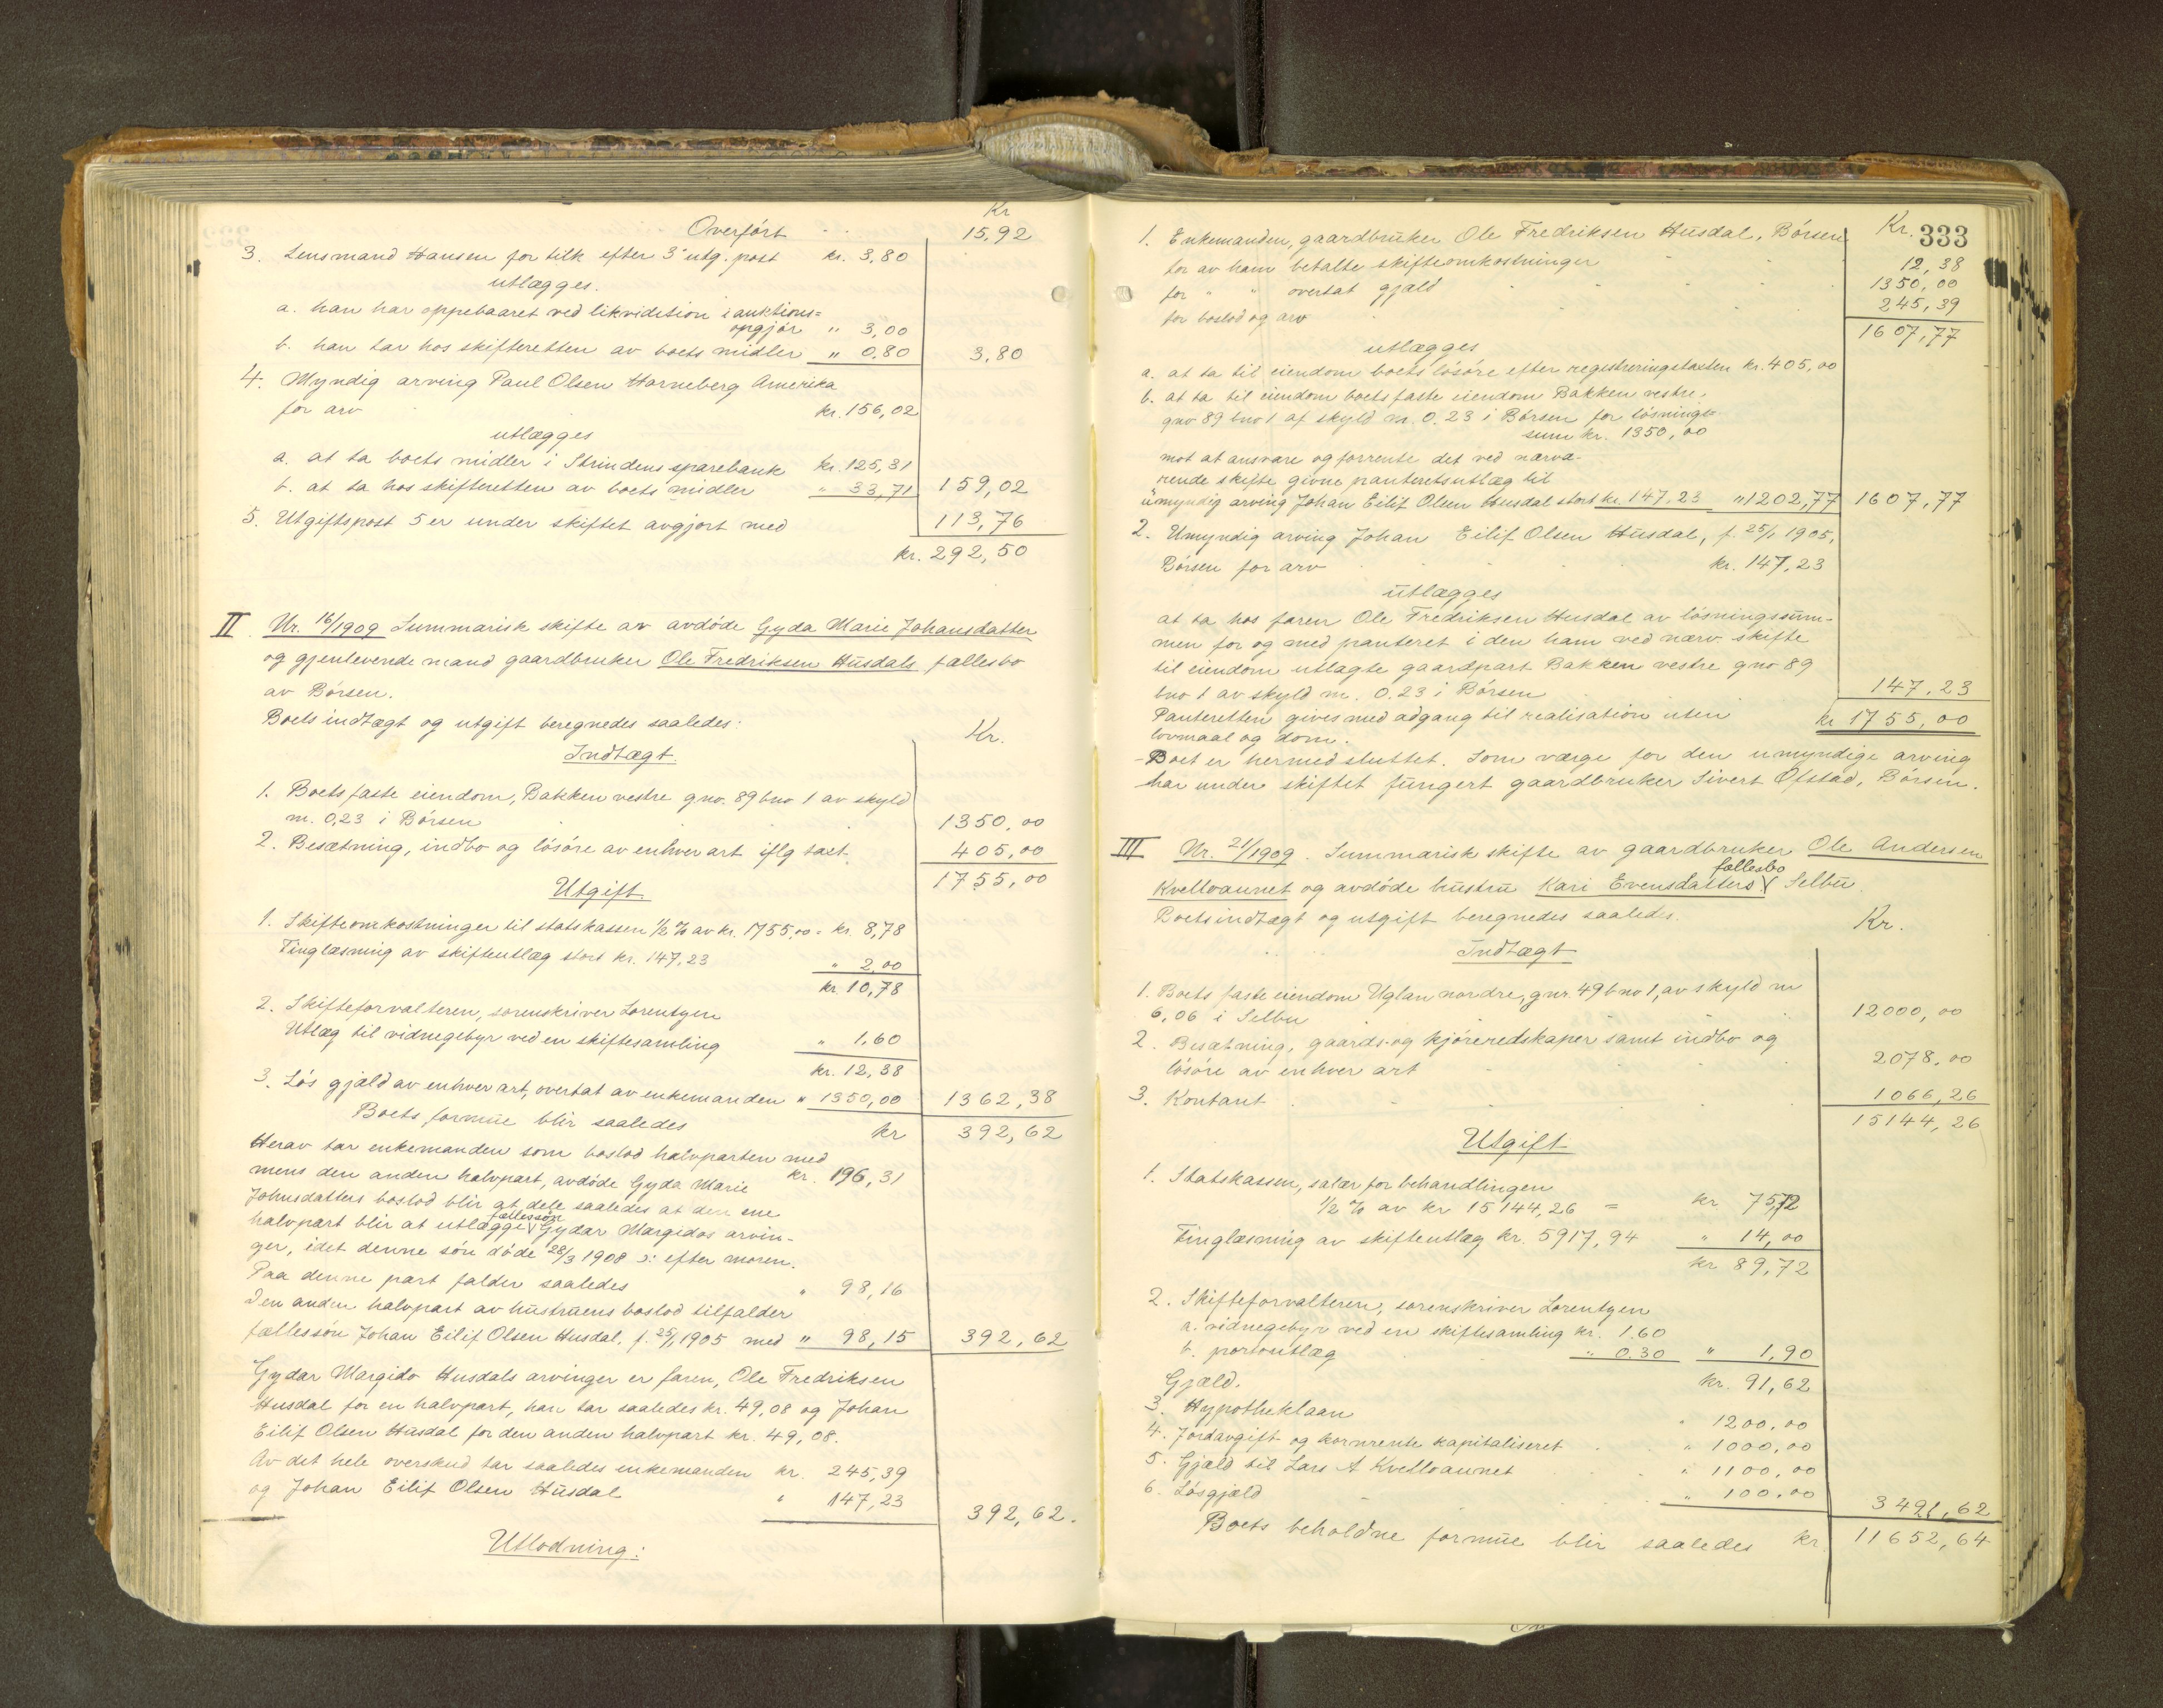 Kr
Overført 15,92
3. Lensmand Hansen for tilk efter 3' utg. post kr. 3,80
utlægges.
a. han har oppebaaret ved likvidition i auktions=
opgjør " 3,00
b. han tar hos skifteretten av boets midler " 0,80 3,80
4. Myndig arving Paul Olsen Horneberg Amerika
for arv kr. 156,02
utlægges
a. at ta boets midler i Strindens sparebank kr. 125,31
b. at ta hos skifteretten av boets midler " 33,71 159,02
5. Utgiftspost 5 er under skiftet avgjort med 113,76
kr. 292,50
II. Nr. 16/1909 Summarisk skifte av avdøde Gyda Marie Johansdatter
og gjenlevende mand gaardbruker Ole Fredriksen Husdals fællesbo
av Børsen.
Boets indtægt og utgift beregnedes saaledes:
Kr.
Indtægt.
1. Boets faste eiendom, Bakken vestre gno. 89 bno 1 av skyld
m. 0,23 i Børsen 1350,00
2. Besætning, indbo og løsøre av enhver art iflg taxt. 405,00
1755,00
Utgift.
1. Skifteomkostninger til statskassen 1/2 % av kr. 1755,00 = kr. 8,78
Tinglæsning av skifteutlæg stort kr. 147,23 " 2,00
kr. 10,78
2. Skifteforvalteren, sorenskriver Lorentzen
Utlæg til vidnegebyr ved en skiftesamling " 1,60
kr. 12,38
3. Løs gjæld av enhver art, overtat av enkemanden " 1350,00 1362,38
Boets formue blir saaledes kr 392,62
Herav tar enkemanden som boslod halvparten med
kr. 196,31
mens den anden halvpart, avdøde Gyda Marie
Johnsdatters boslod blir at dele saaledes at den ene
halvpart blir at utlægge fællessøn Gydar Margidos arvin-
ger, idet denne søn døde 28/3 1908 ɔ: efter moren.
Paa denne part falder saaledes " 98,16
Den anden halvpart av hustruens boslod tilfalder
fællessøn Johan Eilif Olsen Husdal, f. 25/1 1905 med " 98,15 392,62
Gydar Margido Husdals arvinger er faren, Ole Fredriksen
Husdal for en halvpart, han tar saaledes kr. 49,08 og Johan
Eilif Olsen Husdal for den anden halvpart kr. 49,08.
Av det hele overskud tar saaledes enkemanden kr. 245,39
og Johan Eilif Olsen Husdal " 147,23 392,62.
Utlodning:
Kr. 333
1. Enkemanden, gaardbruker Ole Fredriksen Husdal, Børsen
for av ham betalte skifteomkostninger 12,38
for " " overtat gjæld 1350,00
for boslod og arv 245,39
1607,77
utlægges
a. at ta til eiendom boets løsøre efter registreringstaxten kr. 405,00
b. at ta til eiendom boets faste eiendom Bakken vestre,
gno 89 bno 1 af skyld m. 0.23 i Børsen for løsnings-
sum kr. 1350,00
mot at ansvare og forrente det ved nærvæ-
rende skifte givne panteretsutlæg til
umyndig arving Johan Eilif Olsen Husdal stort kr. 147.23 " 1202,77 1607,77
2. Umyndig arving Johan Eilif Olsen Husdal, f. 25/1 1905,
Børsen for arv kr. 147,23
utlægges
at ta hos faren Ole Fredriksen Husdal av løsningssum-
men for og med panteret i den ham ved nærv. skifte
til eiendom utlagte gaardpart Bakken vestre gno 89
bno 1 av skyld m. 0.23 i Børsen 147,23
Panteretten gives med adgang til realisation uten kr 1755,00
lovmaal og dom.
Boet er hermed sluttet. Som værge for den umyndige arving
har under skiftet fungert gaardbruker Sivert Ofstad, Børsen.
III Nr. 21/1909. Summarisk skifte av gaardbruker Ole Andersen
Kvelloaunet og avdøde hustru Kari Evensdatters fællesbo Selbu.
Boets indtægt og utgift beregnedes saaledes.
Kr.
Indtægt
1. Boets faste eiendom Uglan nordre, gnr. 49 bno 1, av skyld m
6,06 i Selbu 12000,00
2. Besætning, gaards- og kjøreredskaper samt indbo og
løsøre av enhver art 2078,00
3. Kontant 1066,26
15144,26
Utgift
1. Statskassen, salær for behandlingen
1/2 % av kr 15144,26 = kr 75,72
Tinglæsning av skifteutlæg kr. 5917,94 " 14,00
kr 89,72
2. Skifteforvalteren, sorenskriver Lorentzen
a. vidnegebyr ved en skiftesamling kr. 1.60
b. portoutlæg " 0.30 " 1,90
kr. 91,62
Gjæld.
3. Hypotheklaan " 1200,00
4. Jordavgift og kornrente kapitaliseret " 1000,00
5. Gjæld til Lars A Kvelloaunet " 1100,00
6. Løsgjæld " 100,00 3491,62
Boets beholdne formue blir saaledes kr. 11652,64